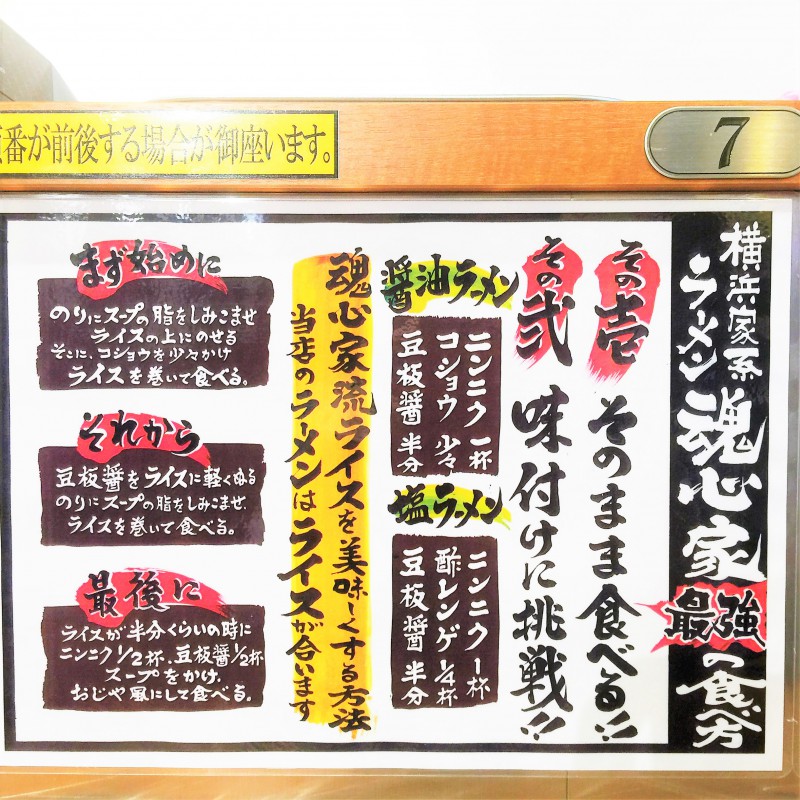 番が前後する場合が御座います。
7
横浜家系
ラーメン魂心家
最強の食べ方
その壱
そのまま食べる!!
その弐
味付けに挑戦!!
醤油ラーメン
ニンニク 一杯
コショウ 少々
豆板醤 半分
塩ラーメン
ニンニク 1杯
酢レンゲ 1/4杯
豆板醤 半分
魂心家流ライスを美味しくする方法
当店のラーメンはライスが合います
まず始めに
のりにスープの脂をしみこませ
ライスの上にのせる
そこに、コショウを少々かけ
ライスを巻いて食べる。
それから
豆板醤をライスに軽くぬる
のりにスープの脂をしみこませ、
ライスを巻いて食べる。
最後に
ライスが半分くらいの時に
ニンニク1/2杯、豆板醤1/2杯
スープをかけ、
おじや風にして食べる。